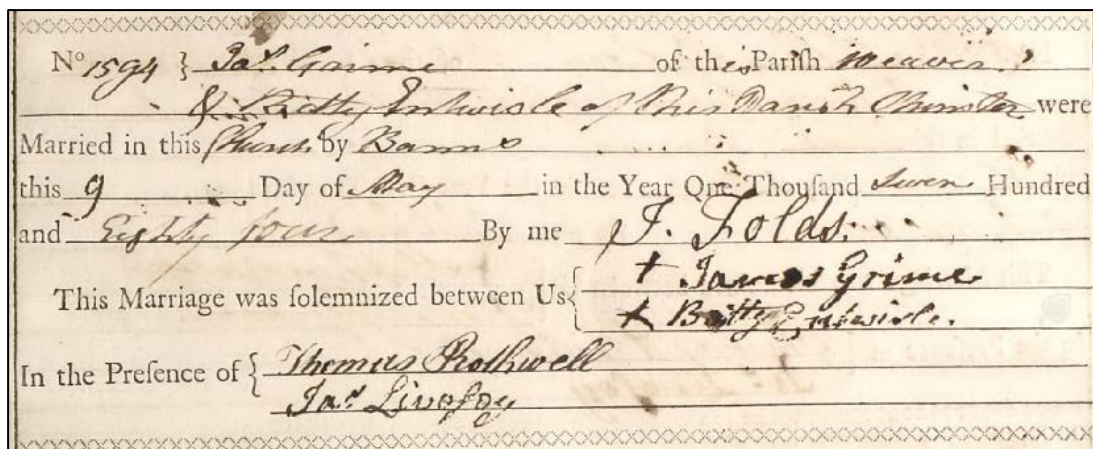 No 1594 } Jas. Grime of this Parish Weaver
& Betty Entwisle of this Parish Spinster were
Married in this Church by Banns
this 9 Day of May in the Year One Thousand Seven Hundred
and Eighty four By me J. Folds.
This Marriage was solemnized between Us { + James Grime
+ Betty Entwisle.
In the Presence of { Thomas Rothwell
Jas. Livesey